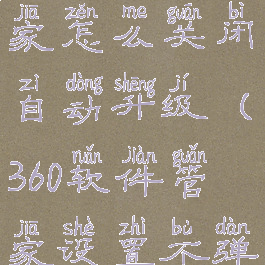 jiā zěn me guān bì
家怎么关闭
zì dòng shēng jí
自动升级(
ruǎn jiàn guǎn
360软件管
jiā shè zhì bù dàn
家设置不弹